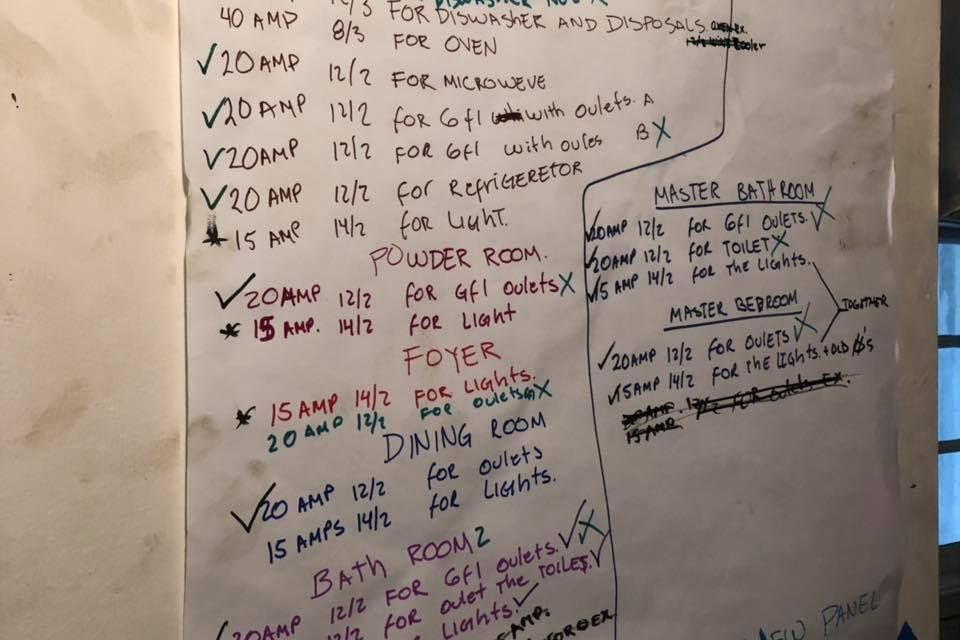 12/3 FOR DISWASHER AND DISPOSALS.
40 AMP 8/3 FOR OVEN
✓20 AMP 12/2 FOR MICROWEVE
✓20 AMP 12/2 for GfI with oulets. A
✓20 AMP 12/2 FOR GFI with oules B X
✓20 AMP 12/2 for RefRIGERETOR
15 AMP 14/2 for LIGHT.
POWDER ROOM.
✓20 AMP 12/2 for GFI Oulets X
15 AMP. 14/2 for LIGHT
FOYER
15 AMP 14/2 FOR LIGHTS.
20 AMP 12/2 FOR oulets X
DINING ROOM
✓20 AMP 12/2 for oulets
15 AMPS 14/2 for Lights.
Bath ROOM 2
✓20AMP 12/2 FOR GFI oulets. ✓X
12/2 FOR oulet The TOILES. ✓
Lights. ✓
AMP.
MASTER BATHROOM
✓20AMP 12/2 for GFI OULETS. ✓
✓20AMP 12/2 for TOILET X
✓15 AMP 14/2 for The LIGHTS.
MASTER BEDROOM
TOGETHER
✓20AMP 12/2 FOR OULETS
✓15AMP 14/2 FOR THE LIGHTS. + OLD
15 AMP.
NEW PANEL